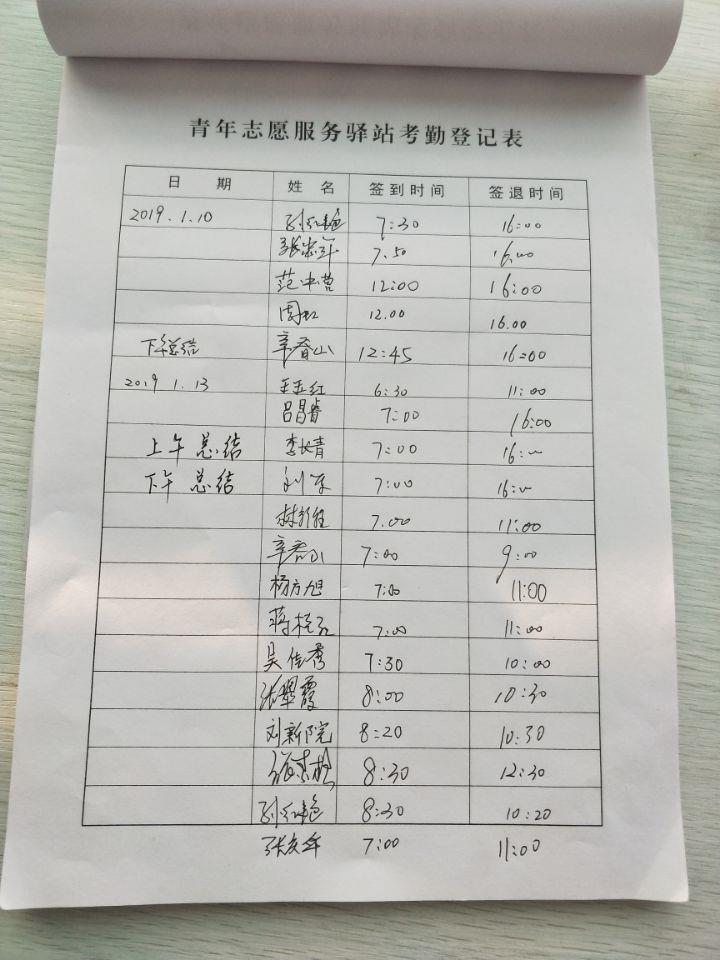 青年志愿服务驿站考勤登记表
日 期 姓 名 签到时间 签退时间
2019.1.10 7:30 16:00
7.50 16.00
范中营 12:00 16:00
周虹 12.00 16.00
下午总结 辛春山 12:45 16:00
2019 1.13 王玉红 6:30 11:00
吕昌睿 7:00 16:00
上午总结 李长青 7:00 16:
下午总结 刘军 7:00 16:
7.00 11:00
辛春山 7:00 9:00
杨方旭 7:00 11:00
蒋桂 7:00 11:00
吴佳秀 7:30 10:00
张翠霞 8:00 10:30
刘新院 8:20 10:30
8:30 12:30
8:30 10:20
张友年 7:00 11:00